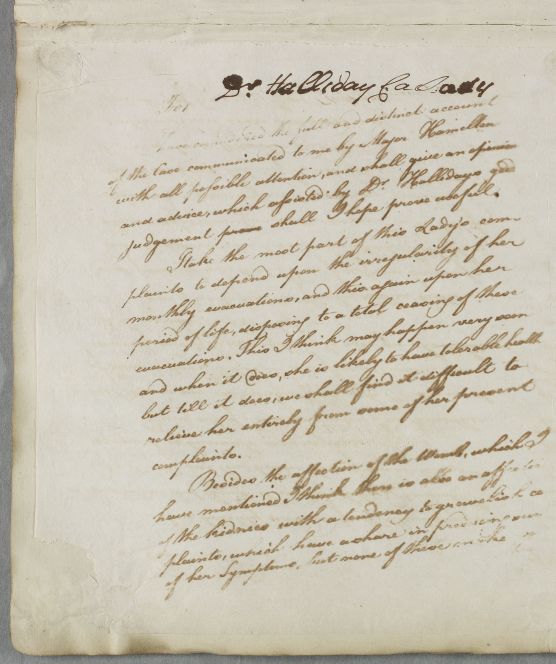 Dr. Halliday for a Lady
For
I have considered the full and distinct account
of the Case communicated to me by Major Hamilton
with all possible attention, and shall give an opinion
and advice, which assisted by Dr. Hallidays good
judgement shall I hope prove useful.
I take the most part of this Ladys com-
plaints to depend upon the irregularity of her
monthly evacuations, and this again upon her
period of life, disposing to a total ceasing of these
evacuations. This I think may happen very soon
and when it does, she is likely to have tolerable health
but till it does, we shall find it difficult to
relieve her entirely from some of her present
complaints.
Besides the affection of the Womb, which I
have mentioned I think there is also an affection
of the kidnies with a tendency to gravelish com
plaints, which have a share in producing some
of her Symptoms, but none of these